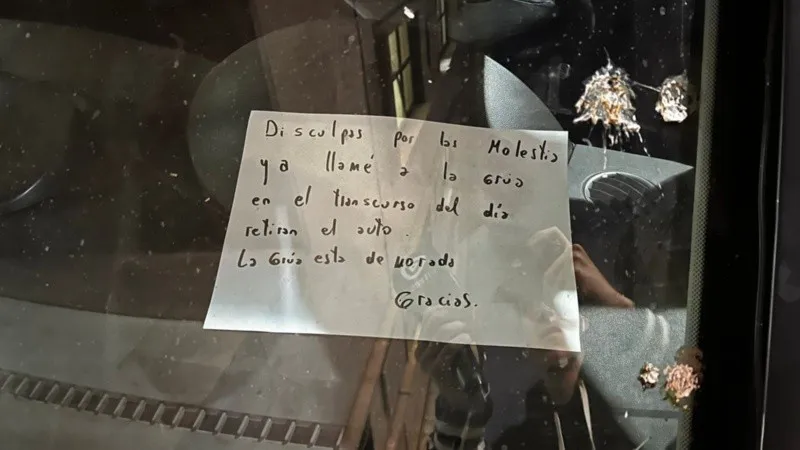 Disculpas por las Molestia
ya llamé a la Grúa
en el transcurso del día
retiran el auto.
La Grúa esta demorada
Gracias.